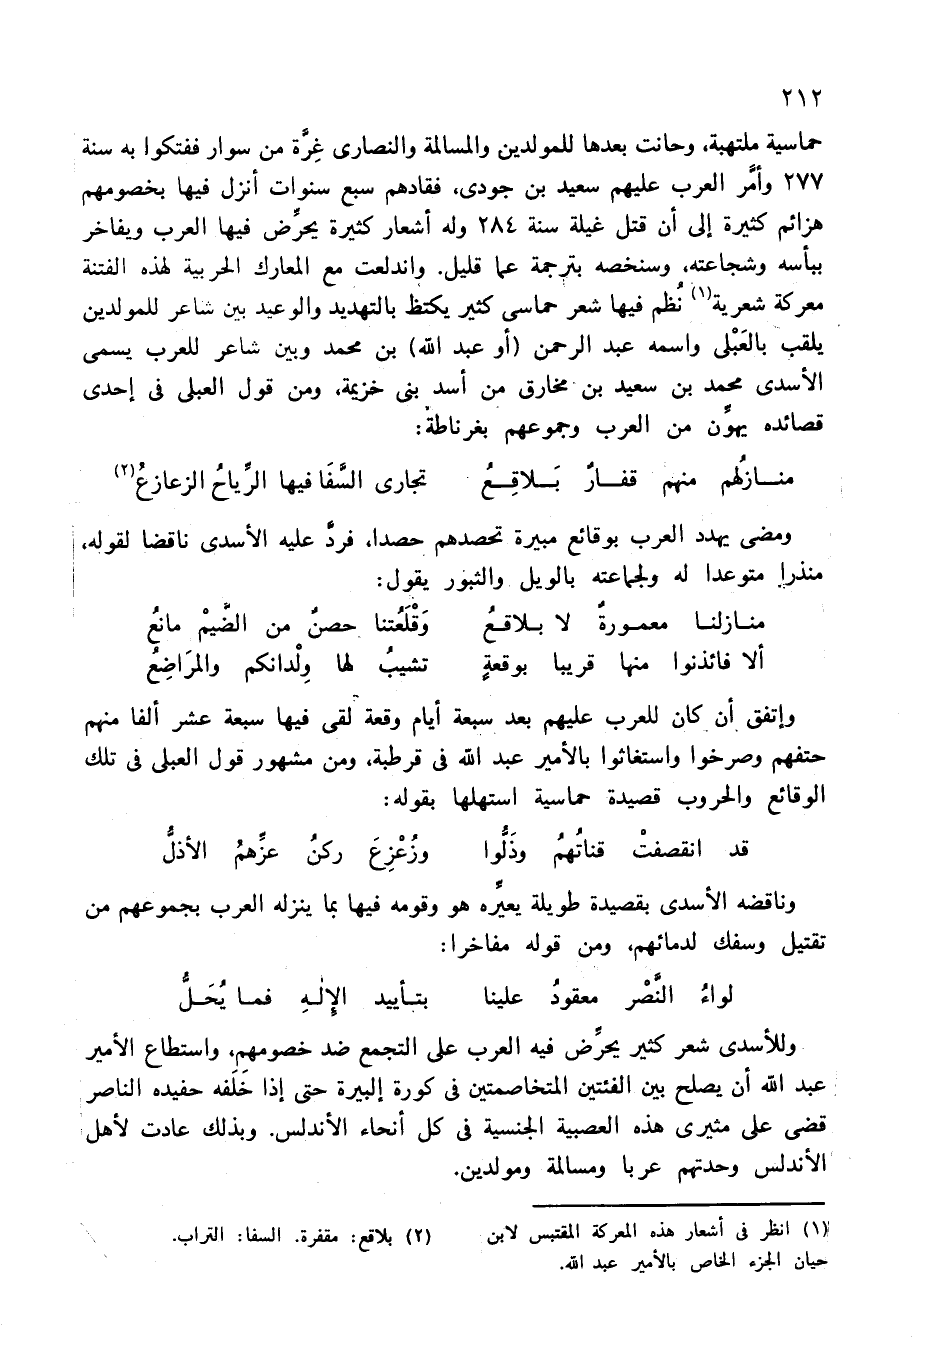 ٢١٢
حماسية ملتهبة، وحانت بعدها للمولدين والمسالمة والنصارى غِرَّة من سوار ففتكوا به سنة
٢٧٧ وأمَّر العرب عليهم سعيد بن جودى، فقادهم سبع سنوات أنزل فيها بخصومهم
هزائم كثيرة إلى أن قتل غيلة سنة ٢٨٤ وله أشعار كثيرة يحرِّض فيها العرب ويفاخر
ببأسه وشجاعته، وسنخصه بترجمة عما قليل. واندلعت مع المعارك الحربية لهذه الفتنة
معركة شعرية(١) نُظم فيها شعر حماسى كثير يكتظ بالتهديد والوعيد بين شاعر للمولدين
يلقب بالعَبْلى واسمه عبد الرحمن (أو عبد الله) بن محمد وبين شاعر للعرب يسمى
الأسدى محمد بن سعيد بن مخارق من أسد بنى خزيمة، ومن قول العبلى فى إحدى
قصائده يهوِّن من العرب وجموعهم بغرناطة:
منــازلُهم منهم قفــارٌ بَــلاقِــعُ تجارى السَّفَا فيها الرِّياحُ الزعازعُ(٢)
ومضى يهدد العرب بوقائع مبيرة تحصدهم حصدا، فردَّ عليه الأسدى ناقضا لقوله،
منذرا متوعدا له ولجماعته بالويل والثبور يقول:
منــازلنــا معمــورةٌ لا بــلاقــعُ وَقْلَعُتنا حصنٌ من الضَّيْم مانعُ
ألا فائذنوا منها قريبا بوقعةٍ تشيبُ لها وِلْدانكم والمرَاضِعُ
وإتفق أن كان للعرب عليهم بعد سبعة أيام وقعة لقى فيها سبعة عشر ألفا منهم
حتفهم وصرخوا واستغاثوا بالأمير عبد الله فى قرطبة، ومن مشهور قول العبلى فى تلك
الوقائع والحروب قصيدة حماسية استهلها بقوله:
قد انقصفتْ قناتُهمُ وذَلُّوا وزُعْزِعَ ركنُ عزِّهمُ الأذلُّ
وناقضه الأسدى بقصيدة طويلة يعيِّره هو وقومه فيها بما ينزله العرب بجموعهم من
تقتيل وسفك لدمائهم، ومن قوله مفاخرا:
لواءُ النَّصْر معقودُ علينا بتــأييد الإلٰــهِ فمــا يُحَــلُّ
وللأسدى شعر كثير يحرِّض فيه العرب على التجمع ضد خصومهم، واستطاع الأمير
عبد الله أن يصلح بين الفئتين المتخاصمتين فى كورة إلبيرة حتى إذا خَلَفه حفيده الناصر
قضى على مثيرى هذه العصبية الجنسية فى كل أنحاء الأندلس. وبذلك عادت لأهل
الأندلس وحدتهم عربا ومسالمة ومولدين.
(١) انظر فى أشعار هذه المعركة المقتبس لابن
حيان الجزء الخاص بالأمير عبد الله.
(٢) بلاقع: مقفرة. السفا: التراب.